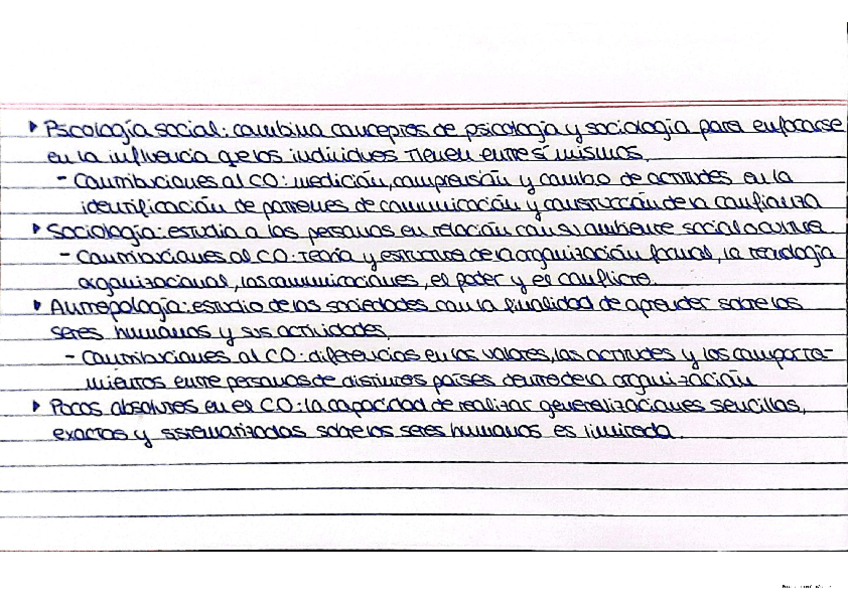 ▸ Psicología social: combina conceptos de psicología y sociología para enfocarse
en la influencia que los individuos tienen entre sí mismos.
- Contribuciones al CO: medición, comprensión y cambio de actitudes en la
identificación de patrones de comunicación y construcción de la confianza
▸ Sociología: estudia a las personas en relación con su ambiente social o cultura
- Contribuciones al CO: Teoría y estructura de la organización formal, la tecnología
organizacional, las comunicaciones, el poder y el conflicto.
▸ Antropología: estudio de las sociedades con la finalidad de aprender sobre los
seres humanos y sus actividades.
- Contribuciones al CO: diferencias en los valores, las actitudes y los comporta-
mientos entre personas de distintos países dentro de la organización
▸ Pocos absolutos en el CO: la capacidad de realizar generalizaciones sencillas,
exactas y sistematizadas sobre los seres humanos es limitada.